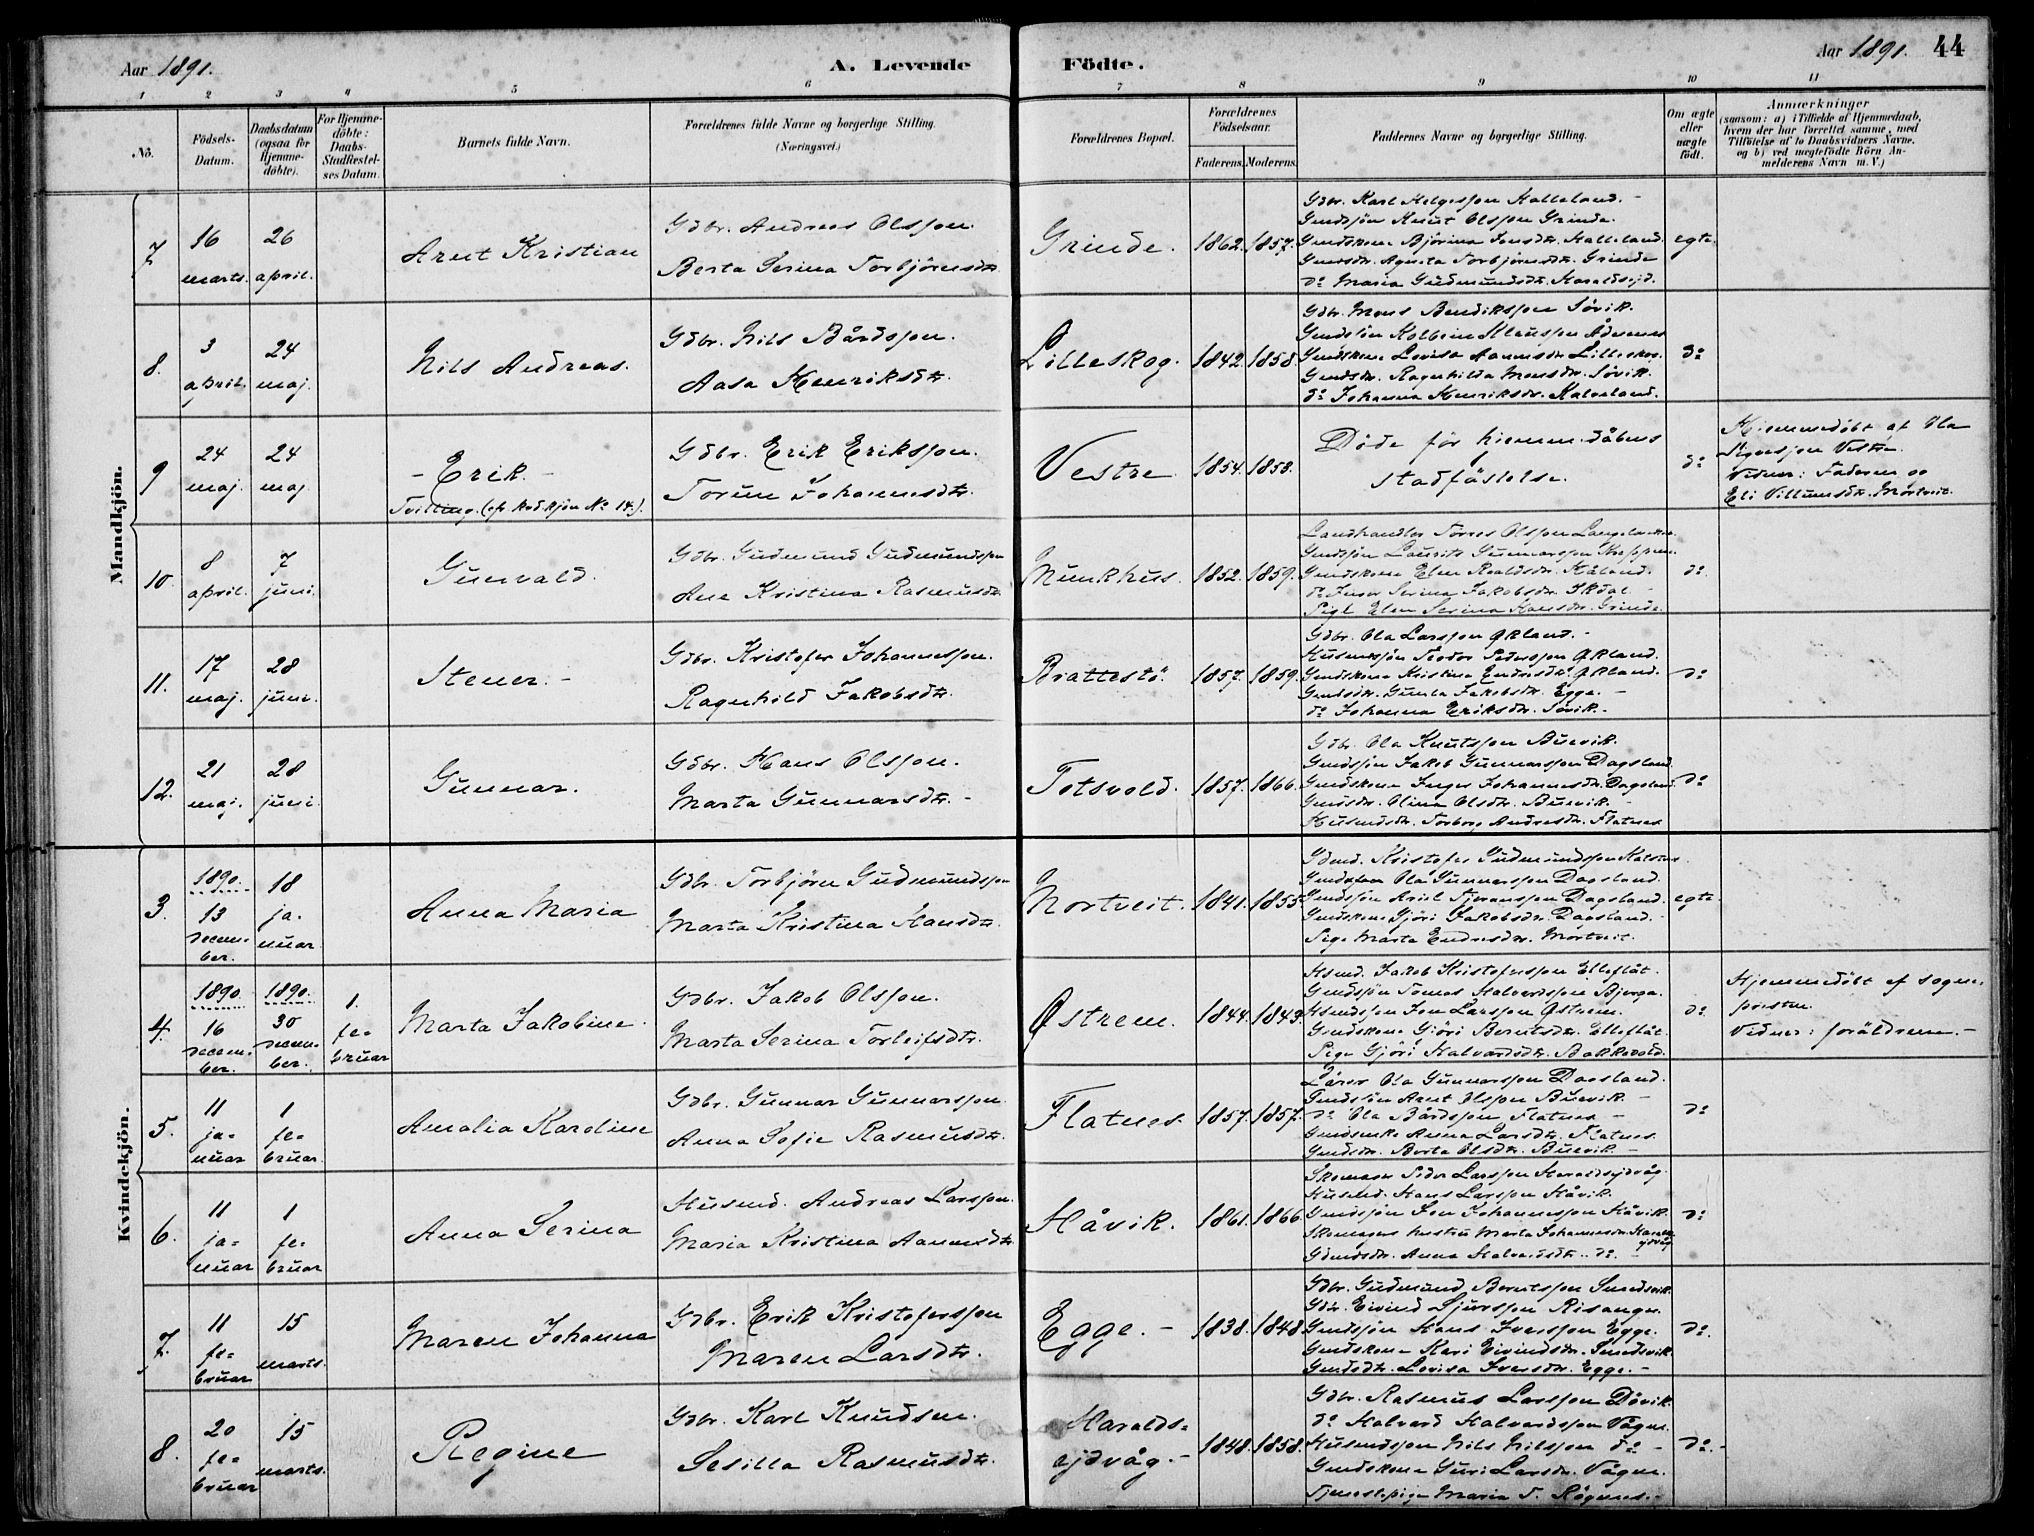 Aar 1891.
A. Levende
Födte.
Aar 1891.
44
1 2 3 4 5 6 7 8 9 10 11
No.
Födsels-
Datum.
Daabsdatum
(ogsaa for
Hjemme-
döbte).
For Hjemme-
döbte:
Daabs-
Stadfæstel-
ses Datum.
Barnets fulde Navn.
Forældrenes fulde Navne og borgerlige Stilling.
(Næringsvei.)
Forældrenes Bopæl.
Forældrenes
Födselsaar.
Faderens. Moderens.
Faddernes Navne og borgerlige Stilling.
Om ægte
eller
uægte
födt.
Anmærkninger
(saasom: a) i Tilfælde af Hjemmedaab,
hvem der har forrettet samme, med
Tilföielse af to Daabsvidners Navne.
og b) ved uægtefödte Börn An-
melderens Navn m. V.)
Mandkjön.
7
16
marts.
26
april.
Arnt Kristian
Gdbr. Andreas Olsson.
Berta Serina Torbjörnsdtr.
Grinde.
1862. 1857.
Gdbr. Karl Helgesson Halleland. -
Gmdssön Knut Olsson Grinde.
Gmdskone Björina Jonsdtr. Halleland.
Gmdsdtr. Agnata Torbjörnsdtr. Grinde
do Maria Gudmundsdtr. Haraldsejd.
egte.
8.
3
april.
24
maj.
Nils Andreas.
Gdbr. Nils Bårdsson.
Aasa Henriksdtr.
Lilleskog.
1842. 1858.
Gdbr. Mons Bendiksson Sövik.
Gmdskone Lovisa Lilleskog.
Gmdsdtr. Ragnhilda Monsdtr. Sövik.
do Johanna Henriksdtr. Kalveland.
do
9
24
maj.
24
maj
- Erik -
Tvilling. (cfr. kvdkjön No 14.).
Gdbr. Erik Eriksson.
Torun Johannesdtr.
Vestre
1854. 1858.
Döde för hjemmedåbens
stadfästelse.
do
Hjemmedöbt af Ola
Vestre.
Vidner: Faderen og
Eli Villumsdtr. Mortveit.
10.
8
april.
7
juni.
Gunvald.
Gdbr. Gudmund Gudmundsson
Ane Kristina Rasmusdtr.
Munkhus.
1852. 1859.
Landhandler Torres Olsson
Gmdssön Laurits Gunnarsson
Gmdskone Elen Roaldsdtr. Håland.
do Inger Serina Jakobsdtr. Skdal
Pige Elen Serina Hansdtr. Grinde.
do.
11.
17
maj.
28
juni.
Stener. -
Gdbr. Kristofer Johannesson.
Ragnhild Jakobsdtr.
Brattestö.
1857. 1859.
Gdbr. Ola Larsson Økland. -
Husmdssön Teodor Pedersson Økland.
Gmdskone Kristina Endresdtr. Økland.
Gmdsdtr. Gunla Jakobsdtr. Egge. -
do Johanna Eriksdtr. Sövik. -
do
12.
21
maj.
28
juni.
Gunnar.
Gdbr. Hans Olsson.
Marta Gunnarsdtr. -
Totsvold.
1857. 1866.
Gdbr. Ola Knutsson Buevik.
Gmdssön Jakob Gunnarsson Dagsland.
Gmdskone Inger Johannesdtr. Dagsland.
Gmdsdtr. Olina Olsdtr. Buevik. -
Husmdsdtr. Torborg Andresdtr. Flatnes
do
Kvindekjön.
3.
1890.
13
decem-
ber.
18
ja-
nuar.
Anna Maria
Gdbr. Torbjörn Gudmundsson
Marta Kristina Hansdtr.
Mortveit.
1841. 1855.
Gdmd. Kristofer Gudmundsson
Ola Gunnarsson Dagsland.
Gmdssön Dagsland.
Gmdskone Gjöri Jakobsdtr. Dagsland. -
Pige Marta Endresdtr. Mortveit.
egte
4.
1890
16
decem-
ber.
1890.
30
decem-
ber.
1.
fe-
bruar
Marta Jakobine.
Gdbr. Jakob Olsson.
Marta Serina Torleifsdtr.
Østrem.
1844. 1843.
Hsmd. Jakob Kristofersson Elleflåt.
Gmdssön Tomas Halvardsson Bjerga.
Hsmdsson Jon Larsson Østrem.
Gmdskone Gjöri Berntsdtr. Elleflåt.
Pige Gjöri Halvardsdtr. Bakkevold.
do
Hjemmedöbt af sogne-
presten.
Vidner: forældrene. -
5.
11
ja-
nuar
1
fe-
bruar.
Amalia Karoline
Gdbr. Gunnar Gunnarsson.
Anna Sofie Rasmusdtr.
Flatnes.
1857. 1857.
Lærer Ola Gunnarsson Dagsland.
Gmdssön Arnt Olsson Buevik. -
do Ola Bårdsson Flatnes -
Gmdsenke Anna Larsdtr. Flatnes.
Gmdsdtr. Berta Olsdtr. Buevik -
do
6.
11
ja-
nuar
1
fe-
bruar
Anna Serina
Husmd. Andreas Larsson.
Maria Kristina Aamundsdtr.
Håvik.
1861. 1866.
Skomager Peder Larsson Haraldsejdvåg.
Husmd. Hans Larsson Håvik.
Gmdssön Jon Johannesson Håvik.
Skomagers hustru Marta Johannesdtr. Haralds-
ejdvåg
Gdmdsdtr. Anna Halvardsdtr. do.
do
7.
11
fe-
bruar
15
marts.
Maren Johanna
Gdbr. Erik Kristofersson
Maren Larsdtr.
Egge. -
1838. 1848.
Gdbr. Gudmund Berntsson Sundsvik.
Gdbr. Eivind Sjursson Risanger.
Gmdssön Hans Iversson Egge.
Gmdskone Kari Eivindsdtr. Sundsvik
Gmdsdtr. Lovisa Iversdtr. Egge. -
do.
8.
20
fe-
bruar
15
marts.
Regine
Gdbr. Karl Knudsen.
Sesilla Rasmusdtr.
Haralds-
ejdvåg. -
1848. 1858.
Gdbr. Rasmus Larsson Dövik.
do Halvard Halvardsson Vågen.
Husmdsson Nils Nilsson do -
Gmdskone Guri Larsdtr. Vågen.
Tjenestepige Maria T. Rögenes. -
do. -